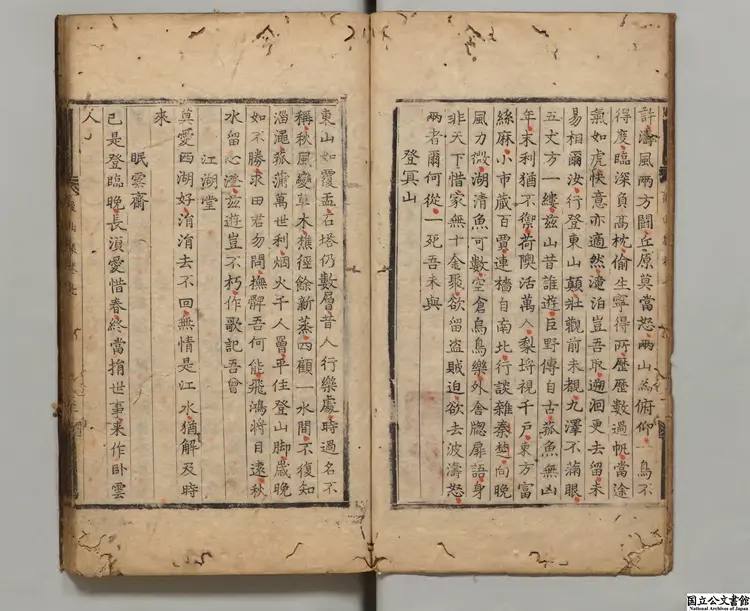 許濤風兩方鬪丘原莫當怒兩山為俯仰一鳥不
得度臨深負高枕偷生寧得所歷歷數過帆當途
氣如虎快意亦適然淹泊豈吾取洄更去留未
易相爾汝行登東山顛壯觀前未覩九澤不滿眼
五丈方一縷茲山昔誰遊巨野傳自古菰魚無凶
年末利猶不禦荷陂活萬人梨埒視千戶東方富
絲麻小市歲百賈連檣自南北行談雜秦楚向晚
風力微湖清魚可數空倉鳥烏樂外舍牕扉語身
非天下惜家無十金聚欲留盜賊迫欲去波濤怒
兩者爾何從一死吾未與
登冥山
東山如覆盂石塔仍數層昔人行樂處時過名不
稱秋風變草木樵徑餘新蒸四顧一水間不復知
淄澠菰蒲萬世利烟火千人曾平住登山脚歲晚
如不勝求田君勿問撫髀吾何能飛鴻將目遠秋
水留心澄茲遊豈不朽作歌記吾曾
江湖堂
莫愛西湖好消消去不回無情是江水猶解及時
來
眠雲齋
已是登臨晚長須愛惜春終當捐世事來作臥雲
人
国立公文書館
National Archives of Japan